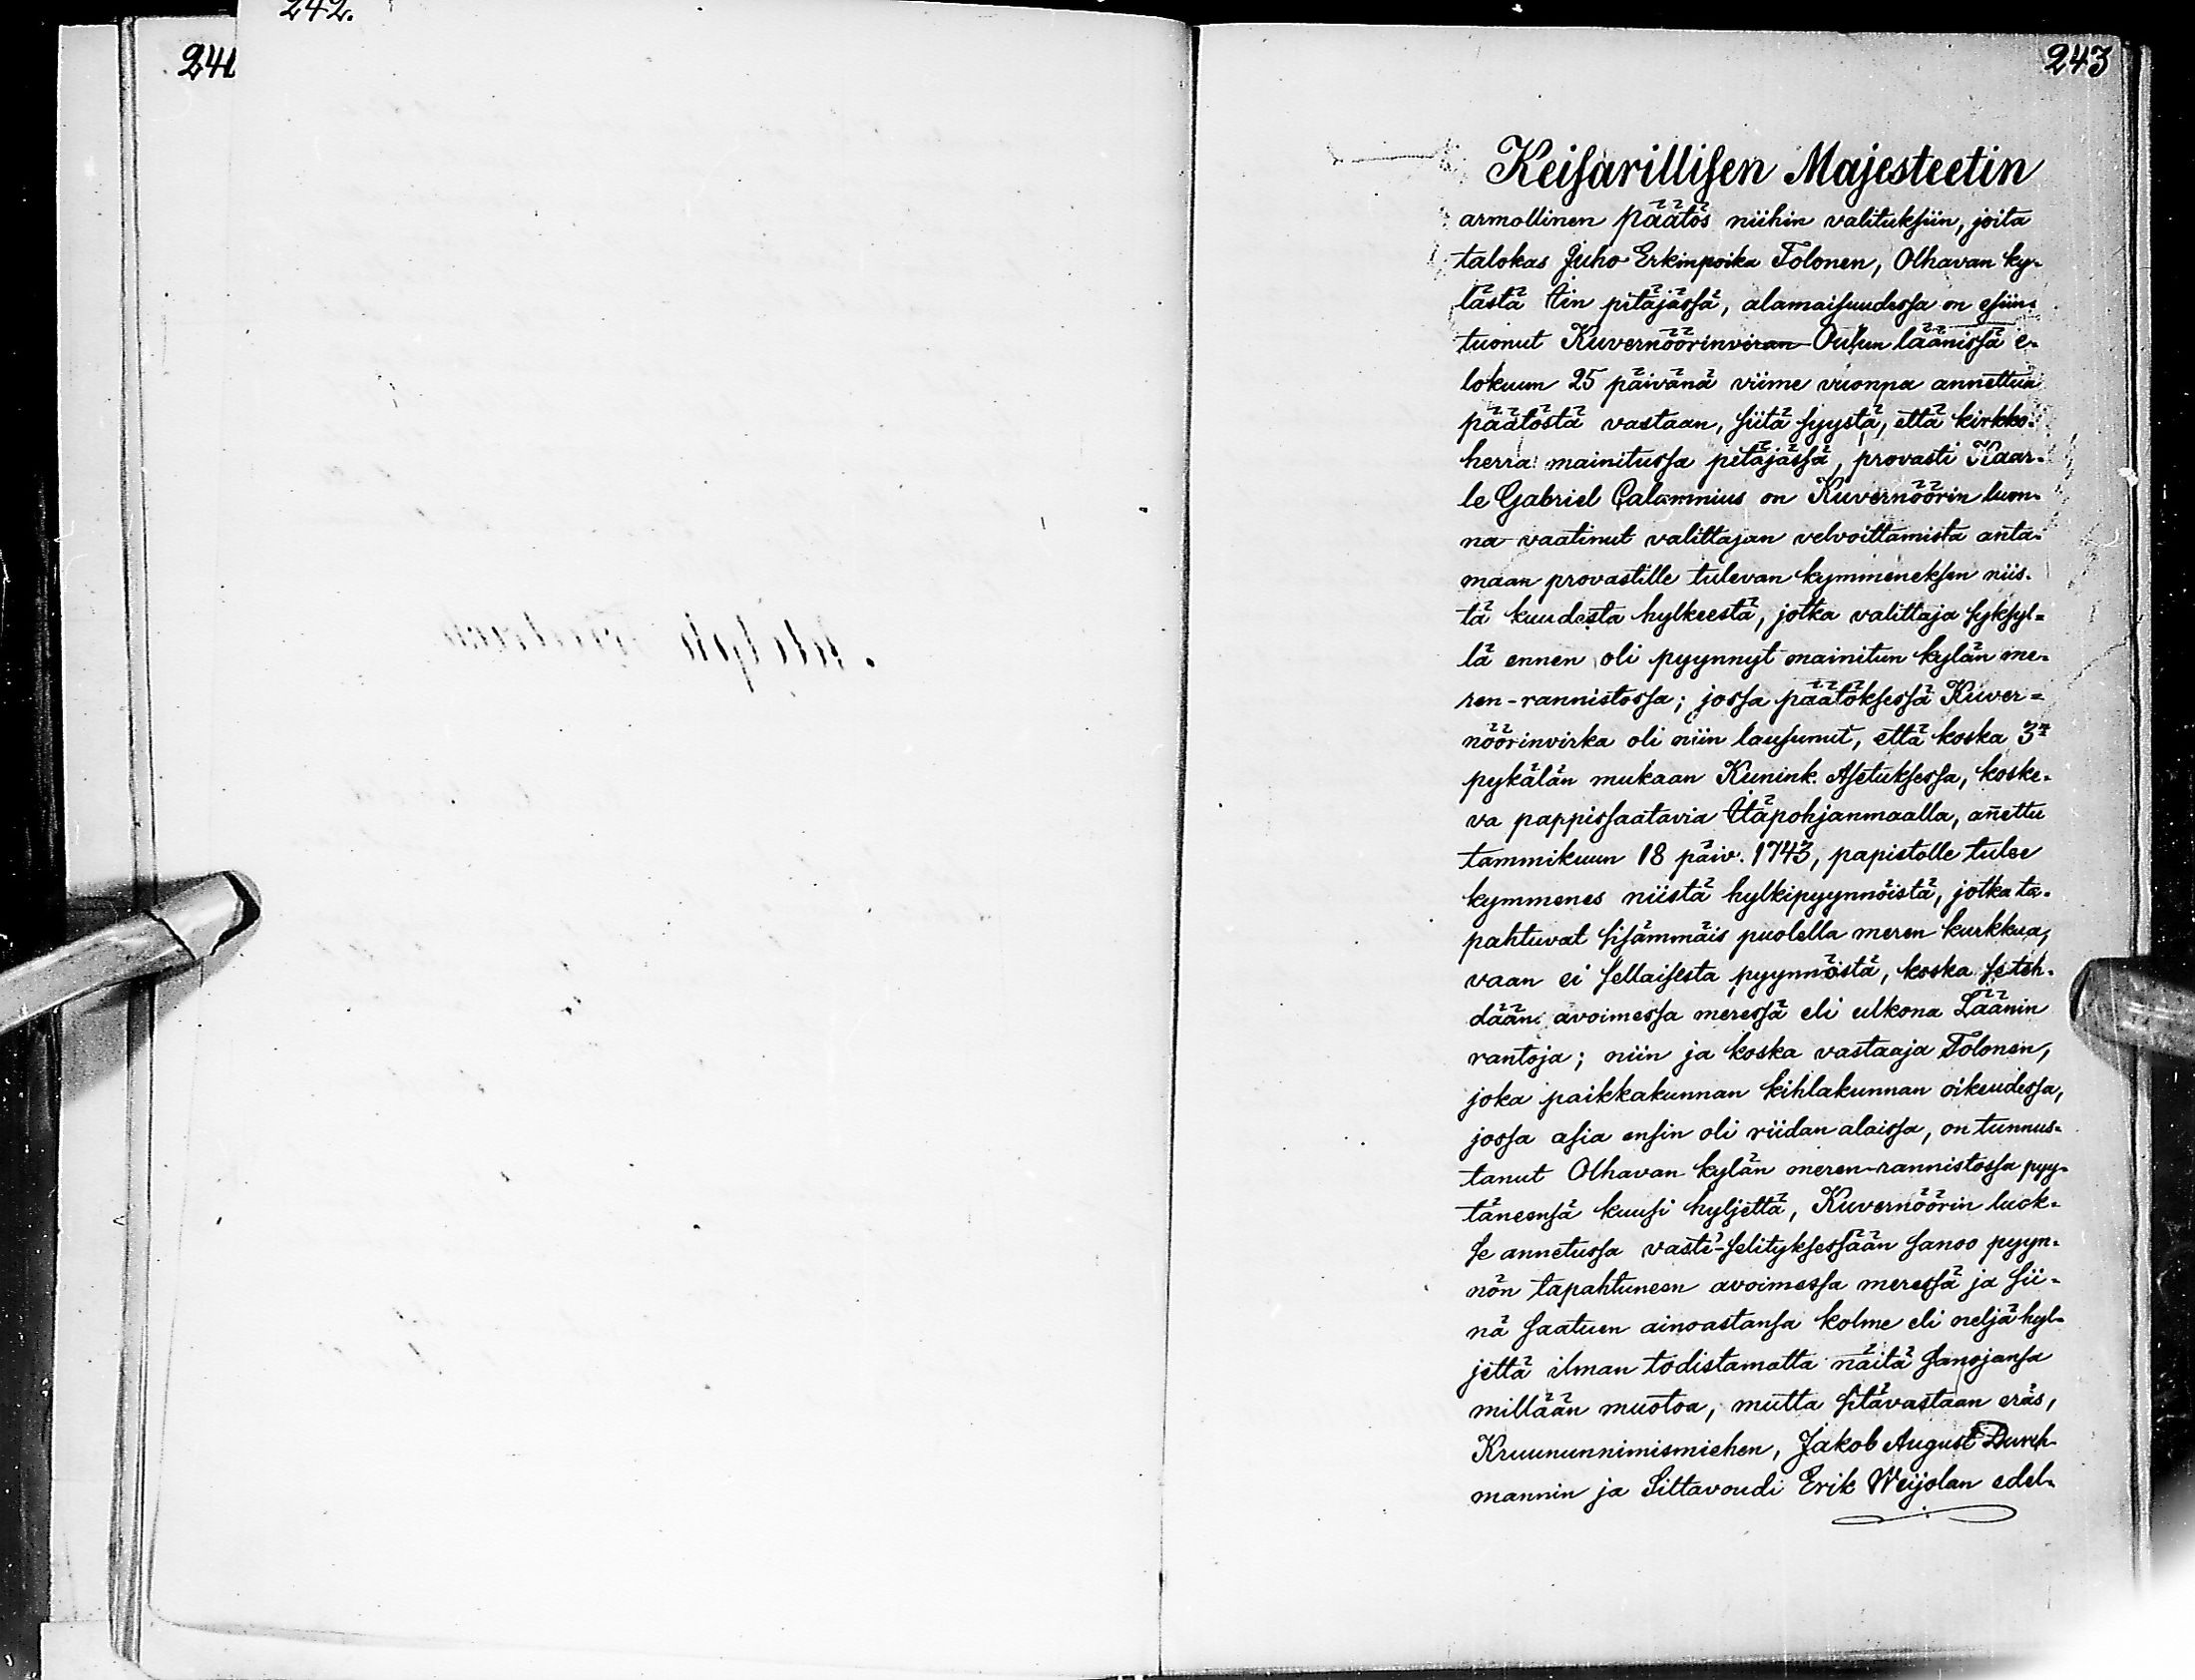 242.
241
243
Keisarillisen Majesteetin
armollinen päätös niihin valituksiin, joita
talokas Juho Erkinpoika Tolonen, Olhavan ky-
lästä Iin pitäjässä, alamaisuudessa on esiin-
tuonut Kuvernöörinviran Oulun läänissä e-
lokuun 25 päivänä viime vuonna annettua
päätöstä vastaan, siitä syystä, että kirkko-
herra mainitussa pitäjässä, provasti Kaar-
le Gabriel Calamnius on Kuvernöörin luon-
na vaatinut valittajan velvoittamista anta-
maan provastille tulevan kymmeneksen niis-
tä kuudesta hylkeestä, jotka valittaja syksyl-
lä ennen oli pyynnyt mainitun kylän me-
ren-rannistossa; jossa päätöksessä Kuver-
nöörinvirka oli niin lausunut, että koska 3:n
pykälän mukaan Kunink. Asetuksessa, koske-
va pappissaatavia Itäpohjanmaalla, an̄ettu
tammikuun 18 päiv. 1743, papistolle tulee
kymmenes niistä hylkipyynnöistä, jotka ta-
pahtuvat sisämmäis puolella meren kurkkua,
vaan ei sellaisesta pyynnöstä, koska se teh-
dään avoimessa meressä eli ulkona Läänin
rantoja; niin ja koska vastaaja Tolonen,
joka paikkakunnan kihlakunnan oikeudessa,
jossa asia ensin oli riidan alaissa, on tunnus-
tanut Olhavan kylän meren-rannistossa pyy-
täneensä kuusi hyljettä, Kuvernöörin luok-
se annetussa vasti-selityksessään sanoo pyyn-
nön tapahtuneen avoimessa meressä ja sii-
nä saatuen ainoastansa kolme eli neljä hyl-
jettä ilman todistamatta näitä sanojansa
millään muotoa, mutta sitävastaan eräs,
Kruununnimismiehen, Jakob August Durch-
mannin ja Siltavoudi Erik Weijolan edel-